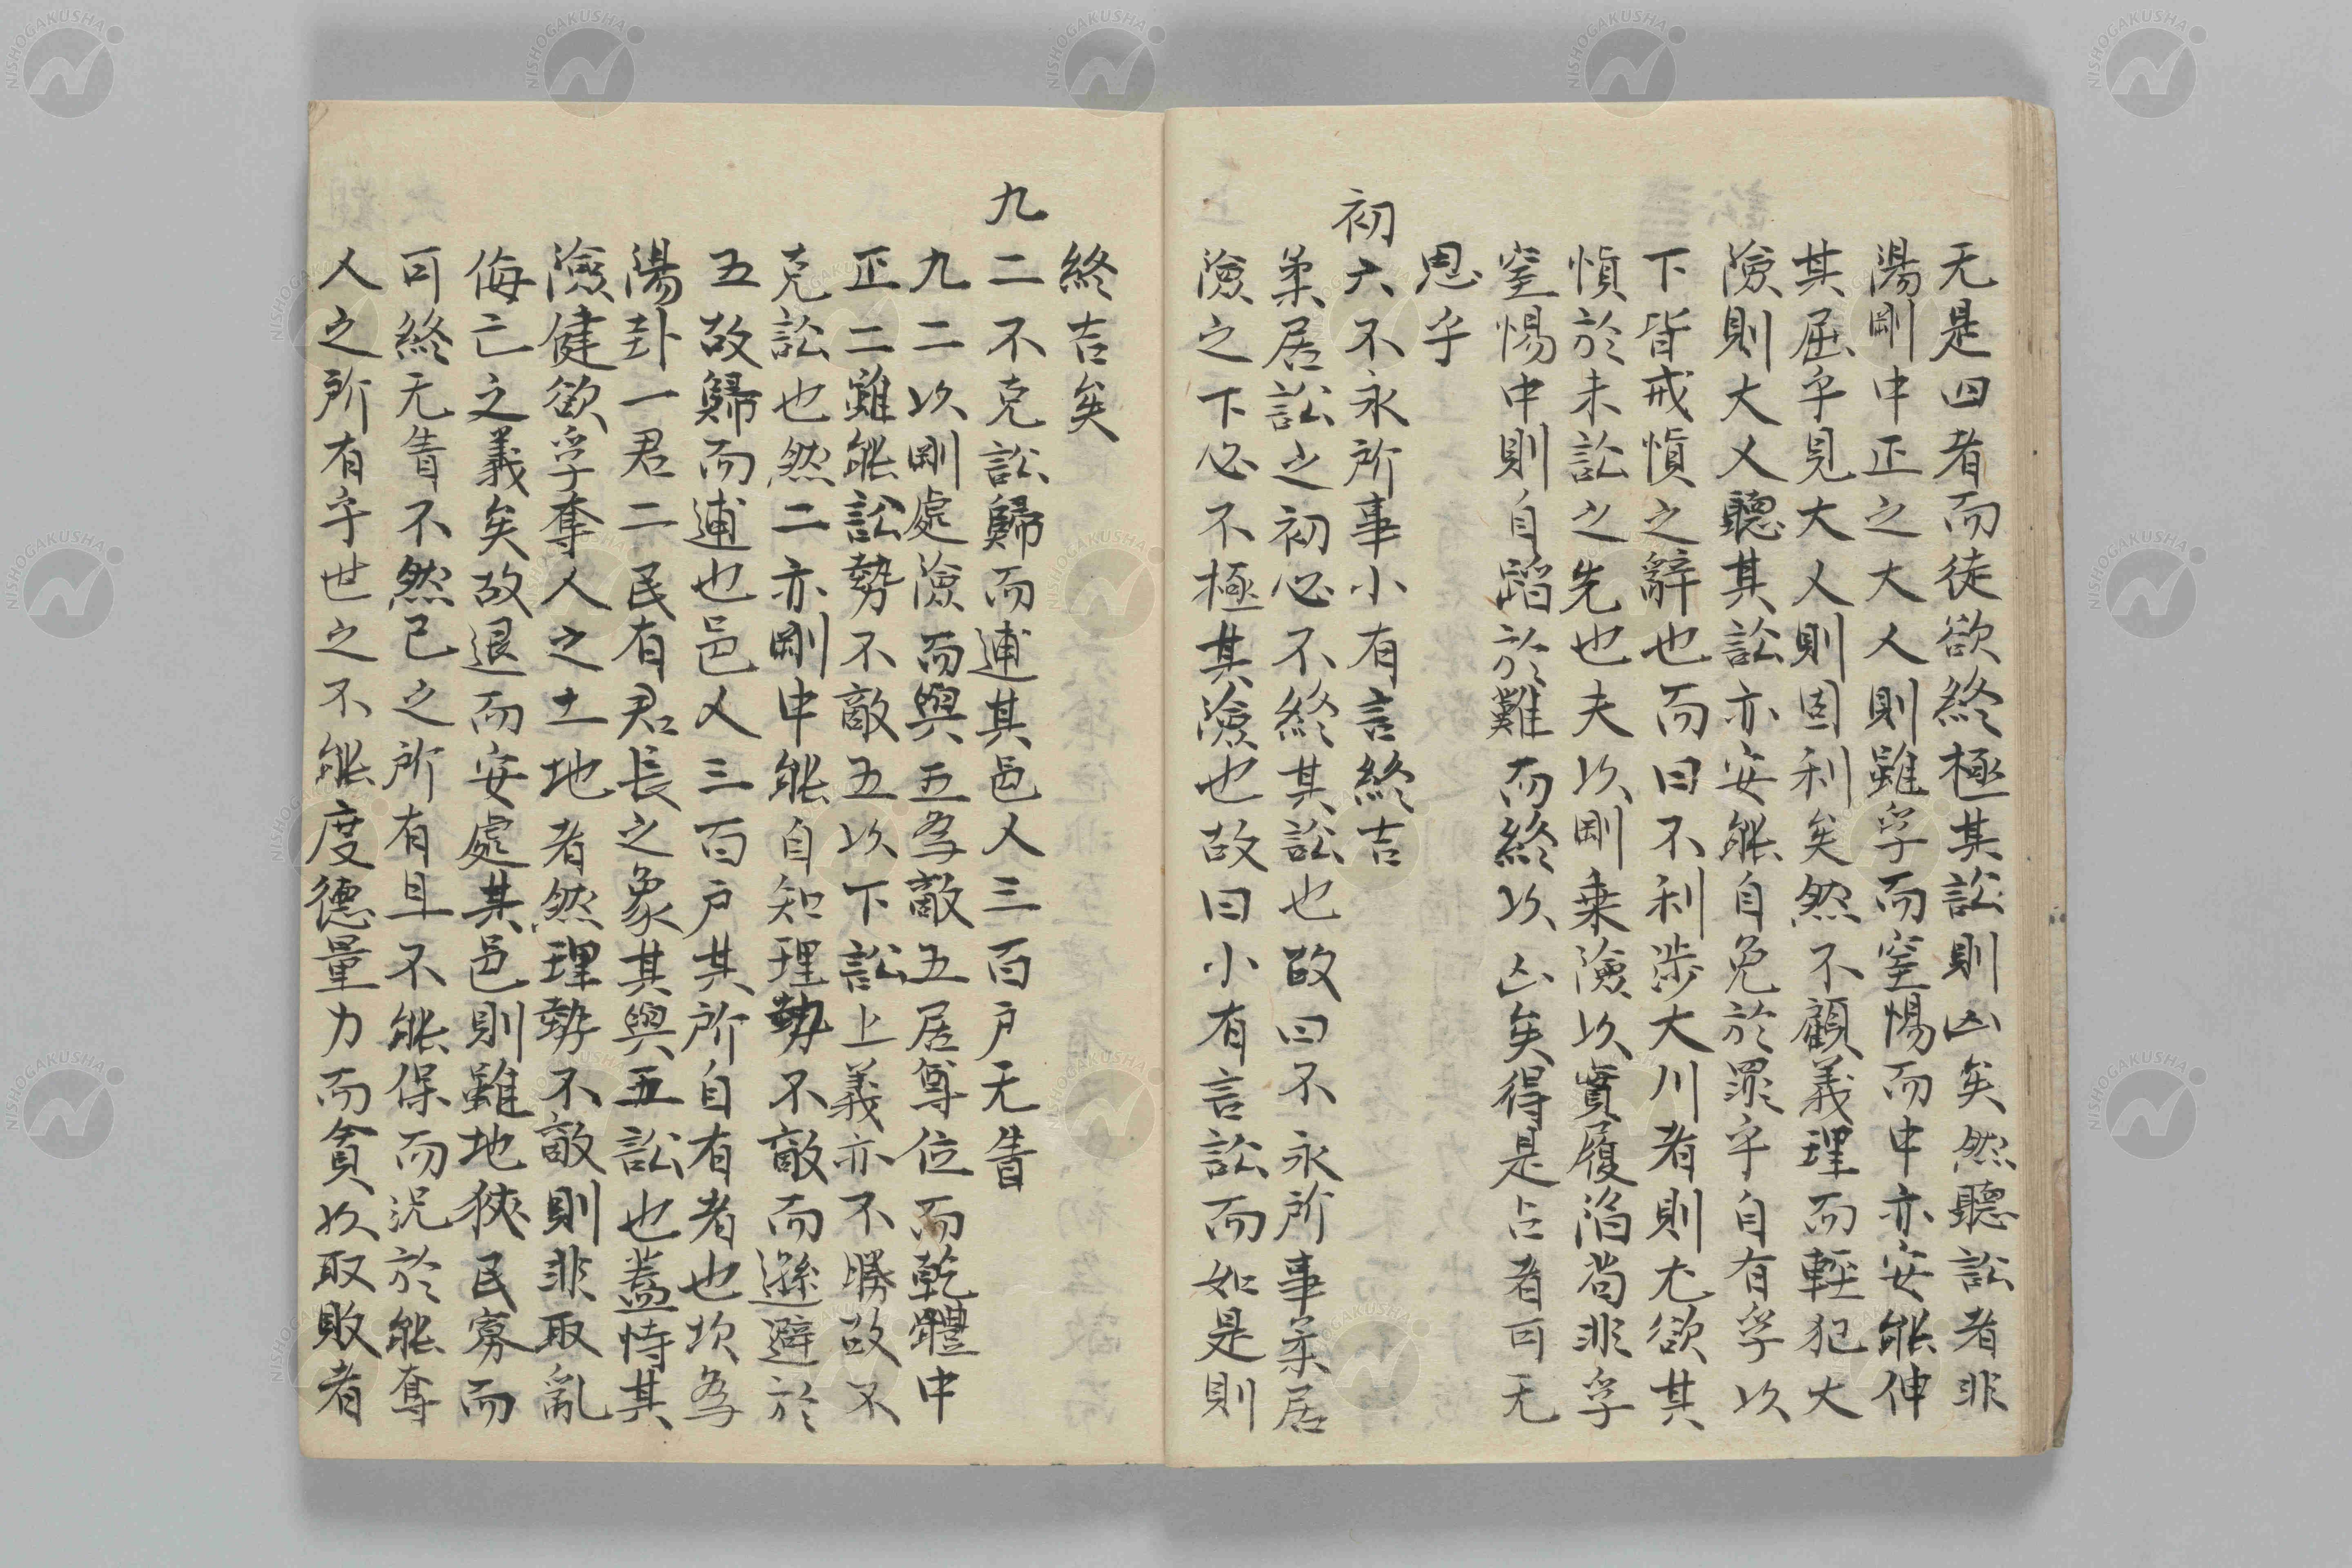 无是四者而徒欲終極其訟則凶矣然聽訟者非
陽剛中正之大人則雖孚而窒惕而中亦安能伸
其屈乎見大人則固利矣然不顧義理而輕犯大
險則大人聽其訟亦安能自免於罪乎自有孚以
下皆戒愼之辭也而曰不利涉大川者則尤欲其
愼於未訟之先也夫以剛乗險以實履陷苟非孚
窒惕中則自蹈於難而終以凶矣得是占者可无
思乎
初六不永所事小有言終吉
柔居訟之初必不終其訟也故曰不永所事柔居
險之下必不極其險也故曰小有言訟而如是則
終吉矣
九二不克訟歸而逋其邑人三百戸无眚
九二以剛處險而與五為敵五居尊位而乾體中
正二雖能訟勢不敵五以下訟上義亦不勝故不
克訟也然二亦剛中能自知理勢不敵而遜避於
五故歸而逋也邑人三百戸其所自有者也坎為
陽卦一君二民有君長之象其與五訟也蓋恃其
險健欲孚奪人之土地者然理勢不敵則非取亂
侮亡之義矣故退而安處其邑則雖地狹民寡而
可終无眚不然己之所有且不能保而況於能奪
人之所有乎世之不能度德量力而貪以取敗者
NISHOGAKUSHA